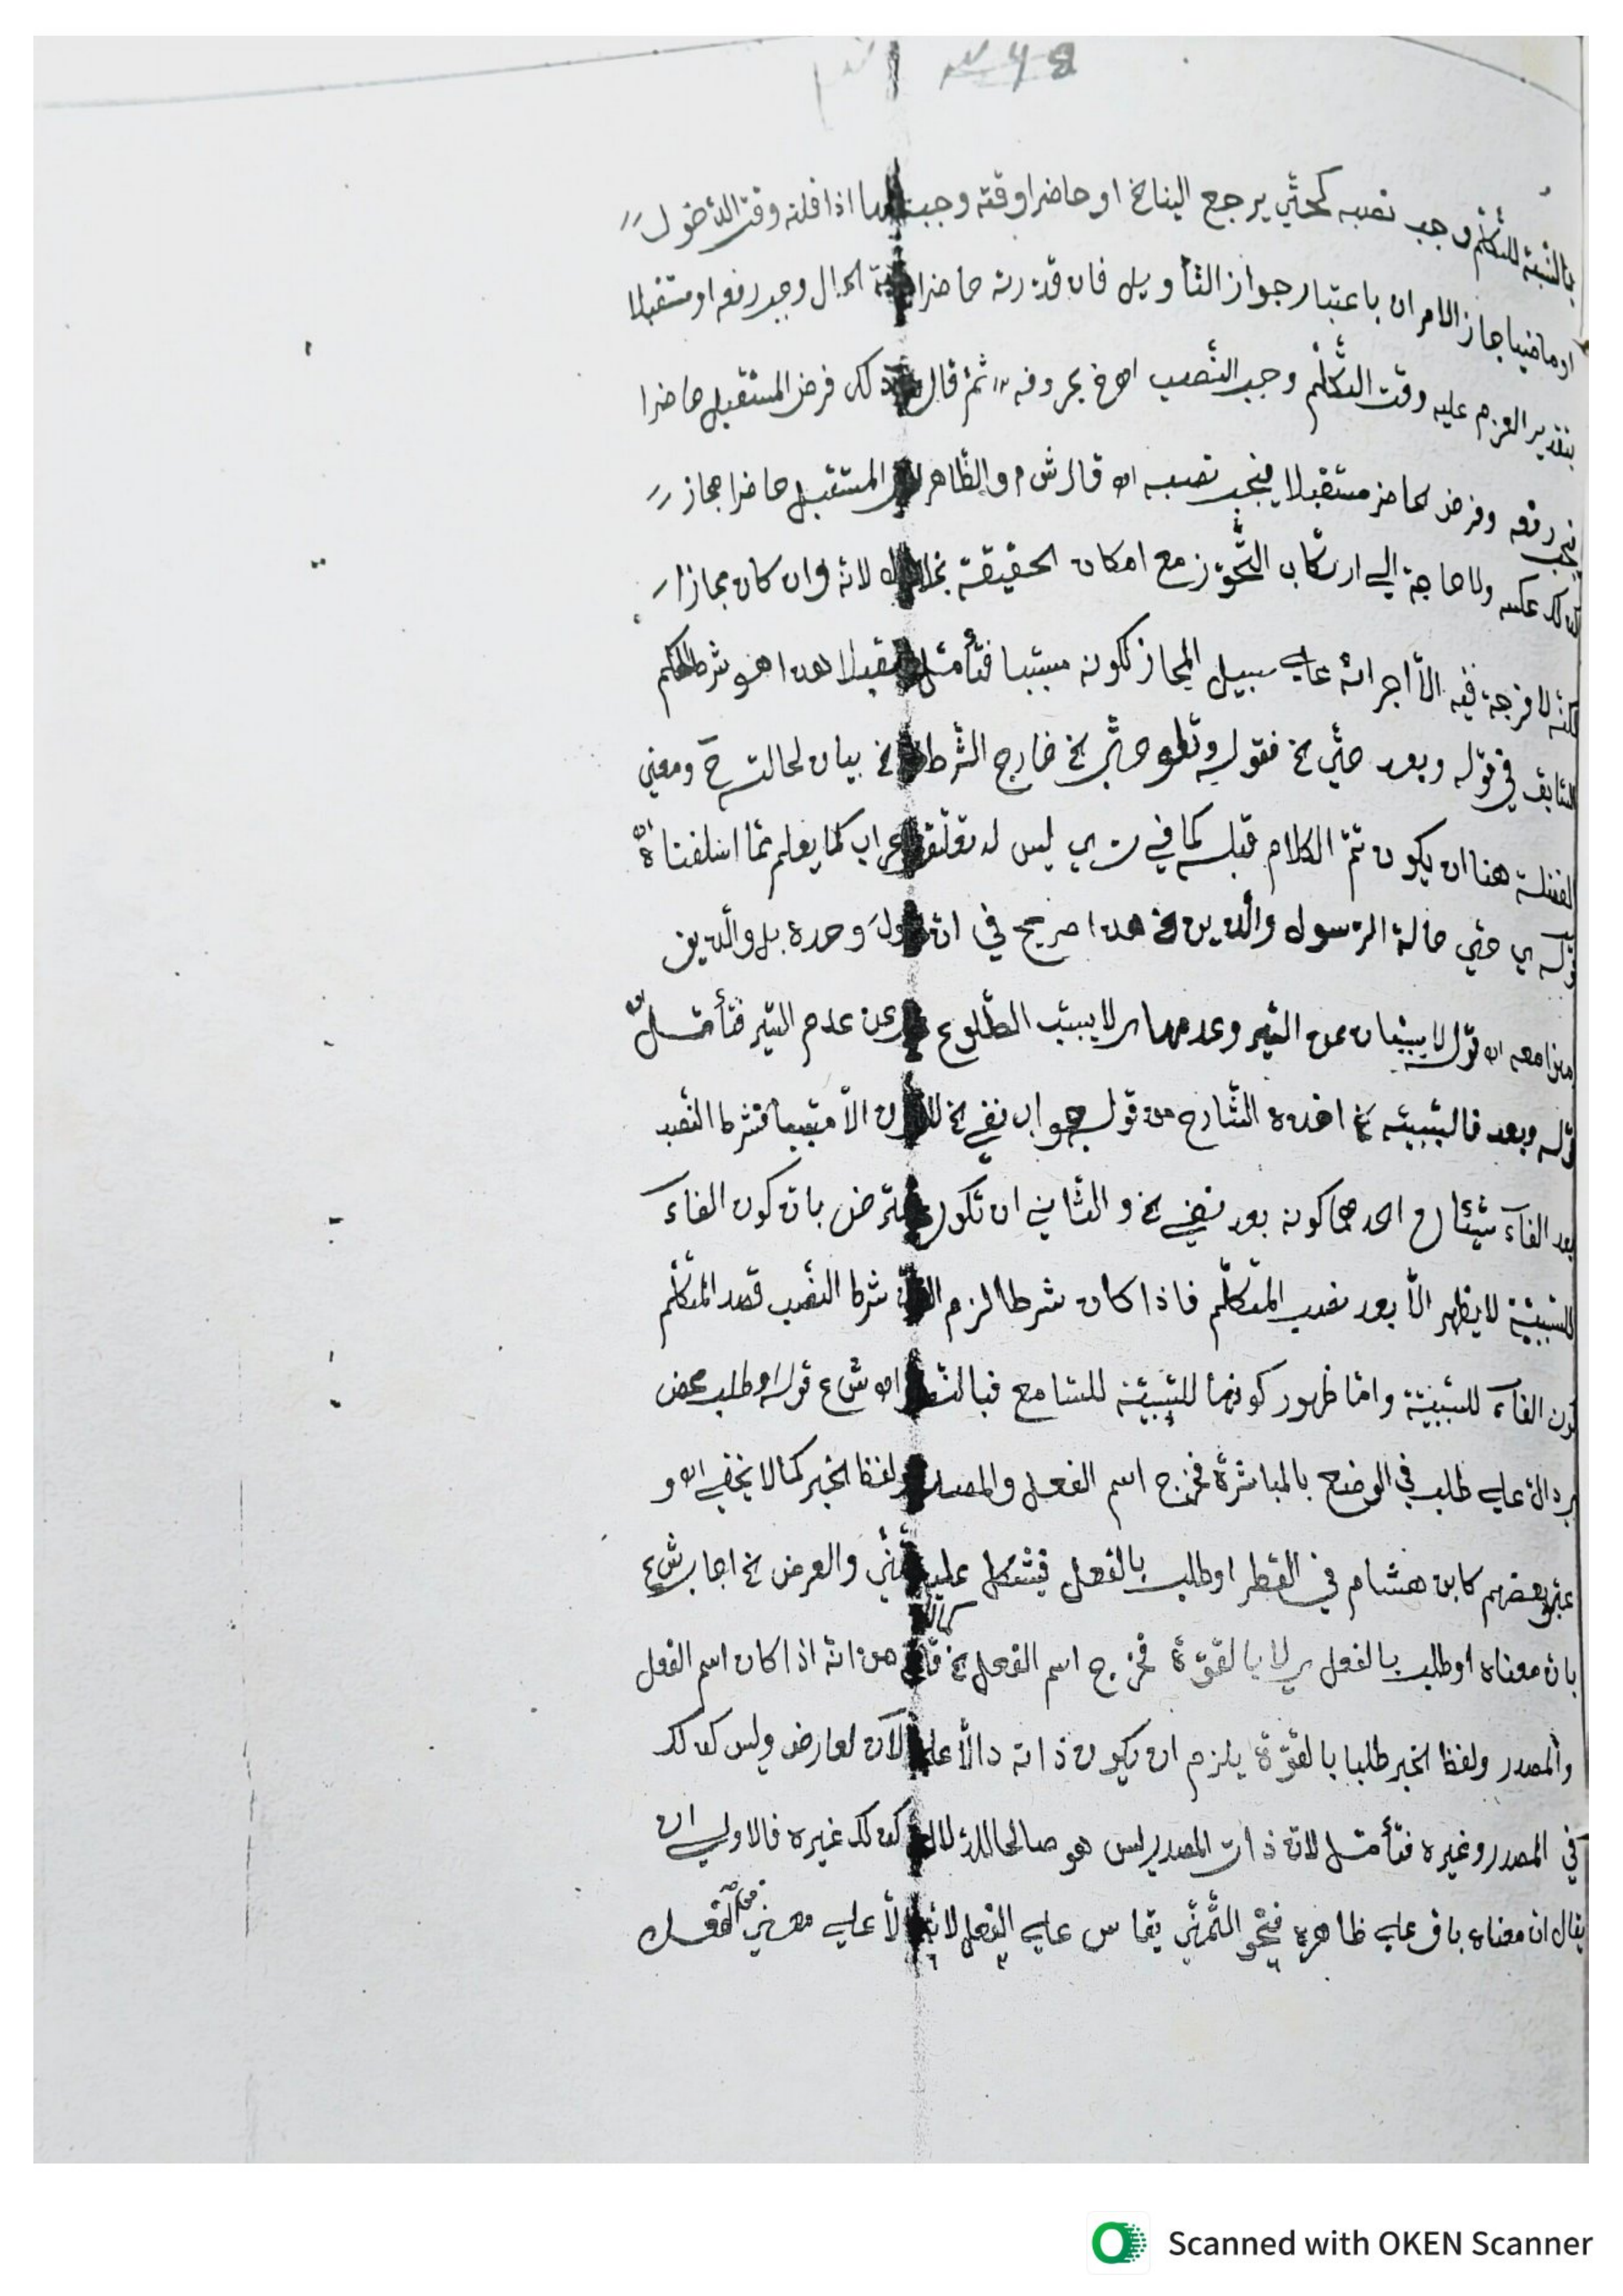 بالنسبة للتكلّم وجب نصبه كحتّي يرجع الينا خ او حاضرا وقته وجب اذا قلته وقت الدّخول
او ماضيا جاز الامران باعتبار جواز التأويل فان قدّرته حاضرا الحال وجب رفعه او مستقبلا
بتقدير العزم عليه وقت التكلّم وجب النّصب اهـ خ بحروفه ثمّ قال فرض المستقبل حاضرا
فيجب رفعه وفرض الحاضر مستقبلا فيجب نصبه اهـ قال ش م والظّاهر المستقبل حاضرا مجاز
كذلك عكسه ولا حاجة الي ارتكاب التّجوّز مع امكان الحقيقة لانه وان كان مجازا
لكنّه لا فرجة فيه الّا اجرائه علي سبيل المجاز لكونه مسبّبا فتأمّل هذا هو شرط الحكم
السّابق في قوله وبعد حتّي خ فقوله وتلو حتّي خ خارج الشّرط خ بيان لحالته ح ومعني
الفضلة هنا ان يكون تمّ الكلام قبله كما في ليس له تعلّق كما يعلم ممّا اسلفناه اهـ
قوله ي حتي حالة الرّسول والّذين خ هذا صريح في وحده بل والّذين
معه اهـ قوله لا يسبّبان عن السّير وعدمها ي لا يسبّب الطّلوع عن عدم السّير فتأمّل اهـ
قوله وبعد فا السّببيّة خ اخذه الشّارح من قوله جواب نفي خ الّا مسبّبا فشرط النّصب
بعد الفآء شيئان احدهما كونه بعد نفي خ والثّاني ان تكون بان كون الفآء
للسّببيّة لا يظهر الّا بعد نصب المتكلّم فاذا كان شرطا لزم شرط النّصب قصد المتكلّم
كون الفآء للسّببيّة وامّا ظهور كونها للسّببيّة للسّامع فبالنّصب اهـ ش ع قوله او طلب محض
ي دالّ علي طلب في الوضع بالمباشرة فخرج اسم الفعل والمصدر ولفظ الخبر كما لا يخفي اهـ و
عبّر بعضهم كابن هشام في القطر او طلب بالفعل فيشكل عليه والعرض خ اجاب ش ع
بان معناه او طلب بالفعل ي لا بالقوّة فخرج اسم الفعل خ انّه اذا كان اسم الفعل
والمصدر ولفظ الخبر طلبا بالقوّة يلزم ان يكون ذاته دالّا عليه الآن لعارض وليس كذلك
في المصدر وغيره فتأمّل لانّ ذات المصدر ليس هو صالحا كذلك غيره فالاولي ان
يقال ان معناه باق علي ظاهره فنحو التّمنّي يقاس علي الفعل لانه علي معني الفعل
Scanned with OKEN Scanner